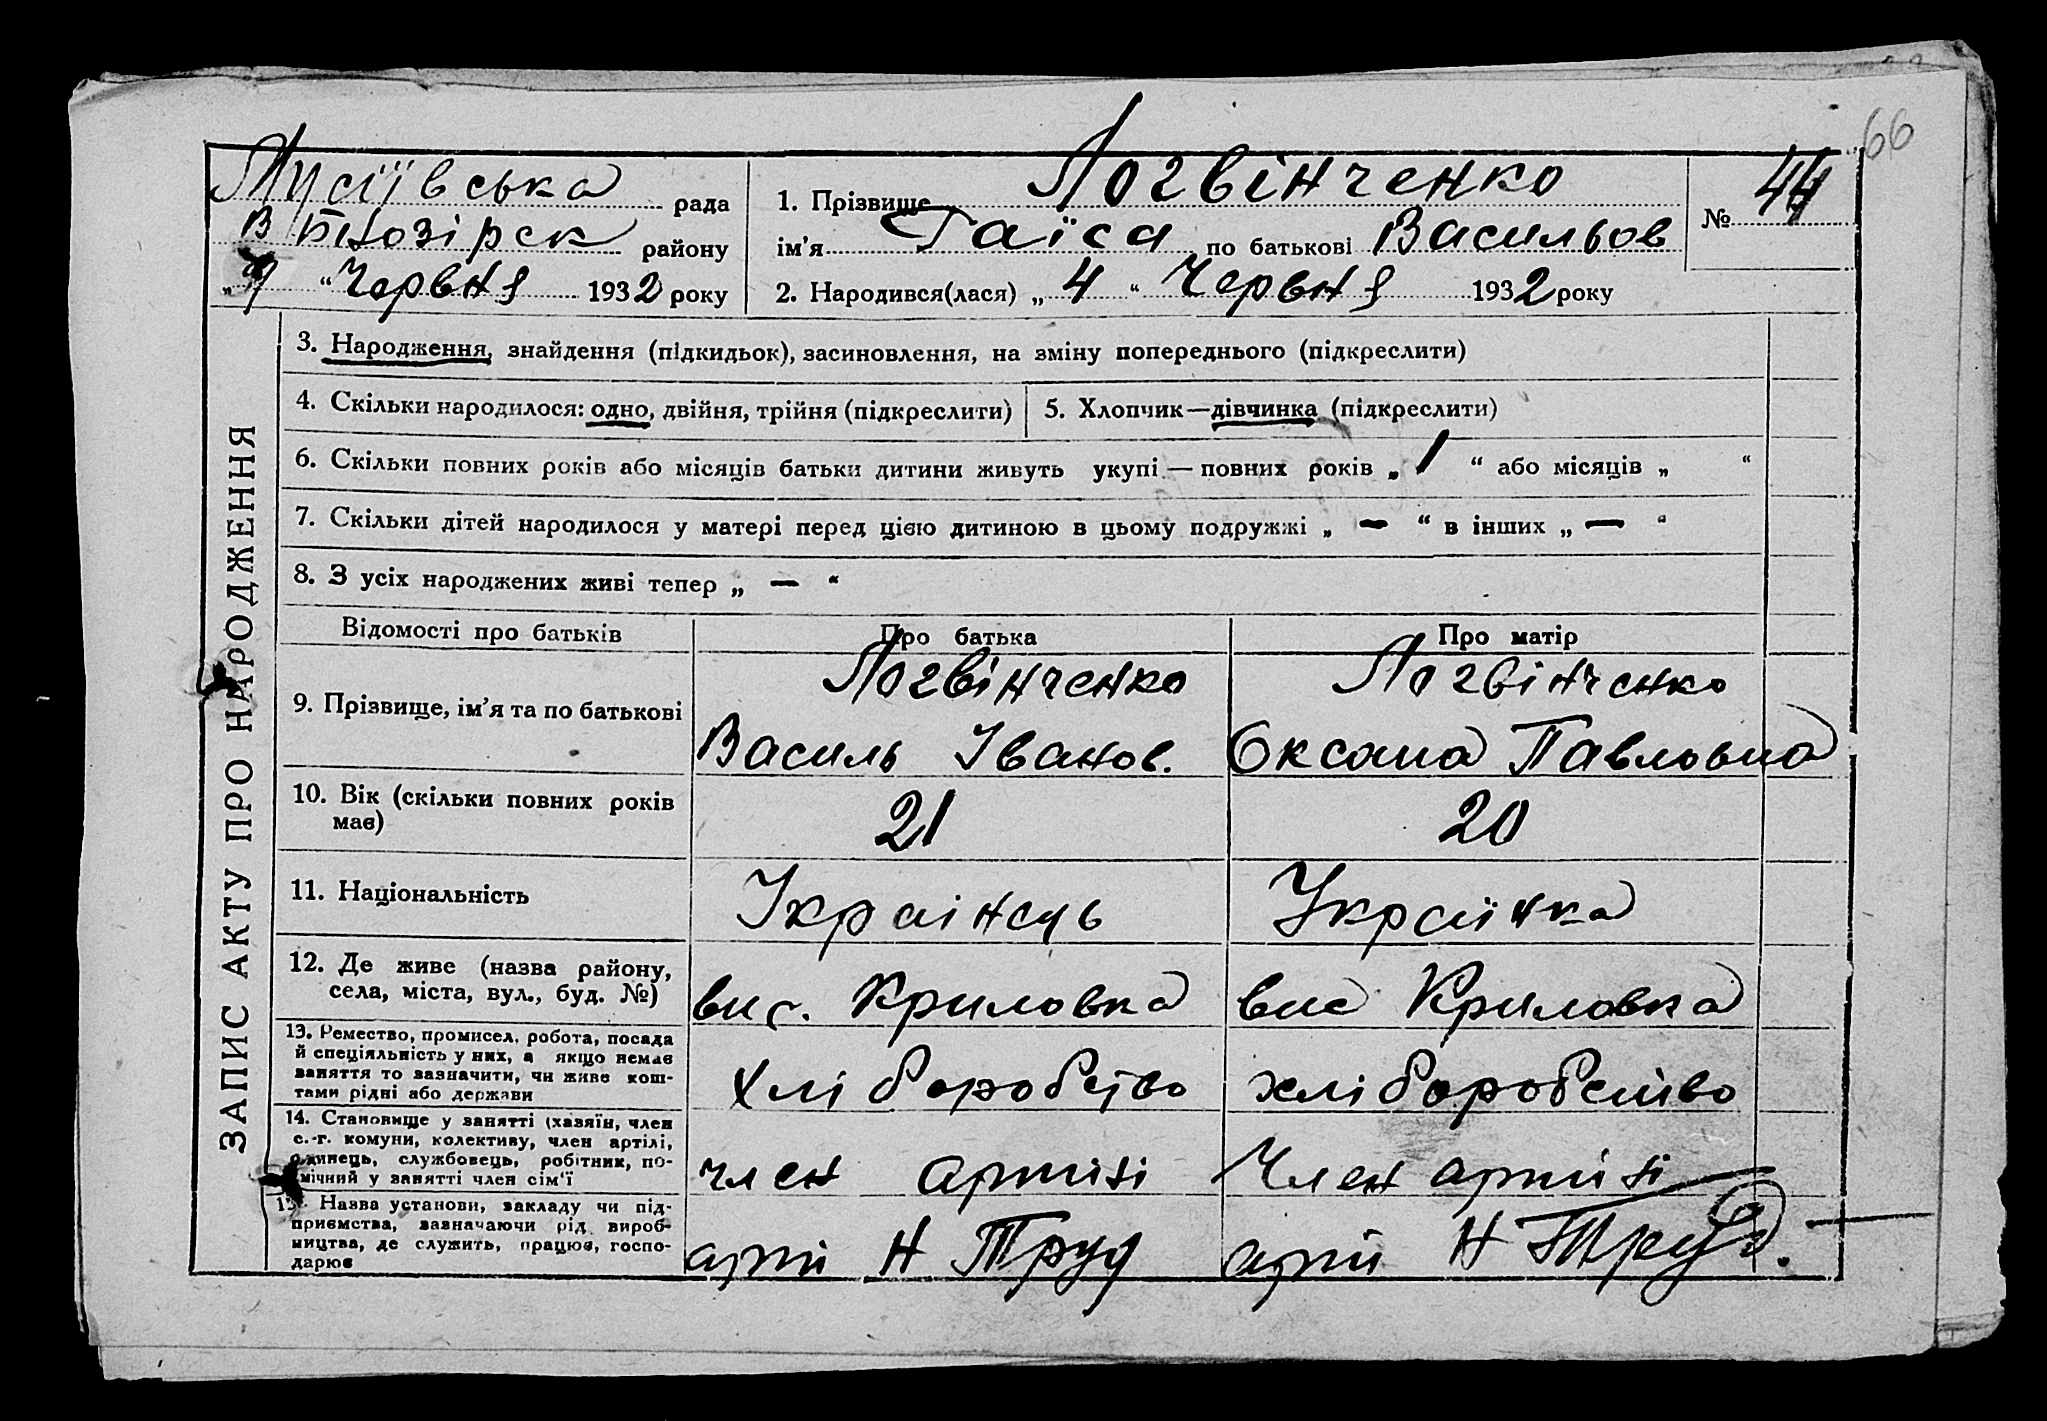 66
Мусіївська рада
В Білозірск району
„9“ Червня 1932 року
1. Прізвище Логвінченко
ім’я Таїса по батькові Васильов
2. Народився(лася) „4“ Червня 1932 року
№ 44
ЗАПИС АКТУ ПРО НАРОДЖЕННЯ
3. Народження, знайдення (підкидьок), засиновлення, на зміну попереднього (підкреслити)
4. Скільки народилося: одно, двійня, трійня (підкреслити)
5. Хлопчик—дівчинка (підкреслити)
6. Скільки повних років або місяців батьки дитини живуть укупі — повних років „1“ або місяців „ “
7. Скільки дітей народилося у матері перед цією дитиною в цьому подружжі „—“ в інших „—“
8. З усіх народжених живі тепер „—“
Відомості про батьків
Про батька
Про матір
9. Прізвище, ім’я та по батькові
Логвінченко
Василь Іванов.
Логвінченко
Оксана Павловна
10. Вік (скільки повних років
має)
21
20
11. Національність
Українець
Українка
12. Де живе (назва району,
села, міста, вул., буд. №)
вис. Криловка
вис Криловка
13. Ремество, промисел, робота, посада
й спеціяльність у них, а якщо немає
заняття то зазначити, чи живе кош-
тами рідні або держави
хліборобство
хліборобство
14. Становище у занятті (хазяїн, член
с.-г. комуни, колективу, член артілі,
одинець, службовець, робітник, по-
мічний у занятті член сім’ї
член артілі
Член артілі
15. Назва установи, закладу чи під-
приємства, зазначаючи рід вироб-
ництва, де служить, працює, госпо-
дарює
арті Н Труд
арті Н Труд.